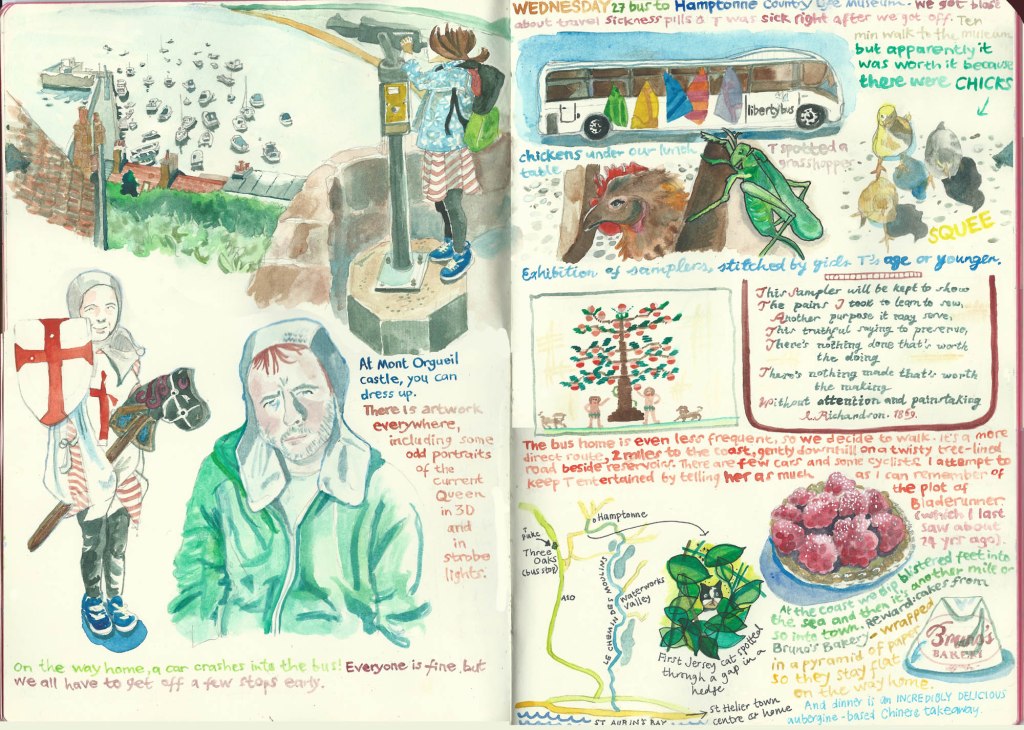 At Mont Orgueil
castle, you can
dress up.
There is artwork
everywhere,
including some
odd portraits
of the
current
Queen
in 3D
and
in
strobe
lights.
On the way home, a car crashes into the bus! Everyone is fine, but
we all have to get off a few stops early.
WEDNESDAY 27 bus to Hamptonne Country Life Museum. We got blasé
about travel sickness pills & T was sick right after we got off. Ten
min walk to the museum
but apparently it
was worth it because
there were CHICKS
libertybus
chickens under our lunch
table
T spotted a
grasshopper
SQUEE
Exhibition of samplers, stitched by girls T's age or younger.
This Sampler will be kept to show
The pains I took to learn to sew,
Another purpose it may serve,
This truthful saying to preserve,
There's nothing done that's worth
the doing
There's nothing made that's worth
the making
Without attention and painstaking
L. Richardson. 1869.
The bus home is even less frequent, so we decide to walk. It's a more
direct route, 2 miles to the coast, gently downhill on a twisty tree-lined
road beside reservoirs. There are few cars and some cyclists. I attempt to
keep T entertained by telling her as much as I can remember of
the plot of
Bladerunner
(which I last
saw about
24 yrs ago).
Hamptonne
T puke
Three
Oaks
(bus stop)
A10
LE CHEMIN DES MOULINS
Waterworks
Valley
First Jersey cat spotted
through a gap in a
hedge
St Helier town
centre at home
ST AUBIN'S BAY
At the coast we dip blistered feet into
the sea and then it's another mile or
so into town. Reward: cakes from
Bruno's Bakery - wrapped
in a pyramid of paper
so they stay flat
on the way home.
Bruno's
BAKERY
And dinner is an INCREDIBLY DELICIOUS
aubergine-based Chinese takeaway.